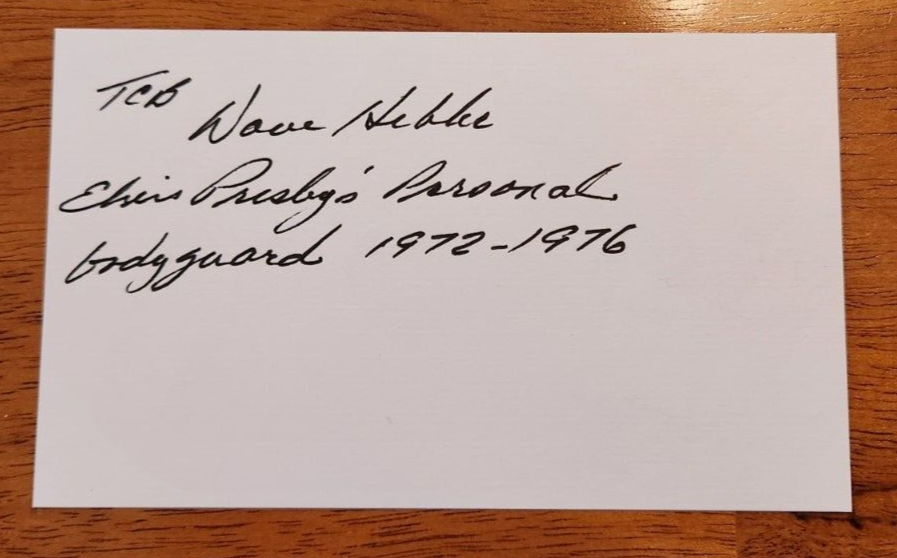 TCB
Dave Hebler
Elvis Presley's Personal
bodyguard 1972-1976